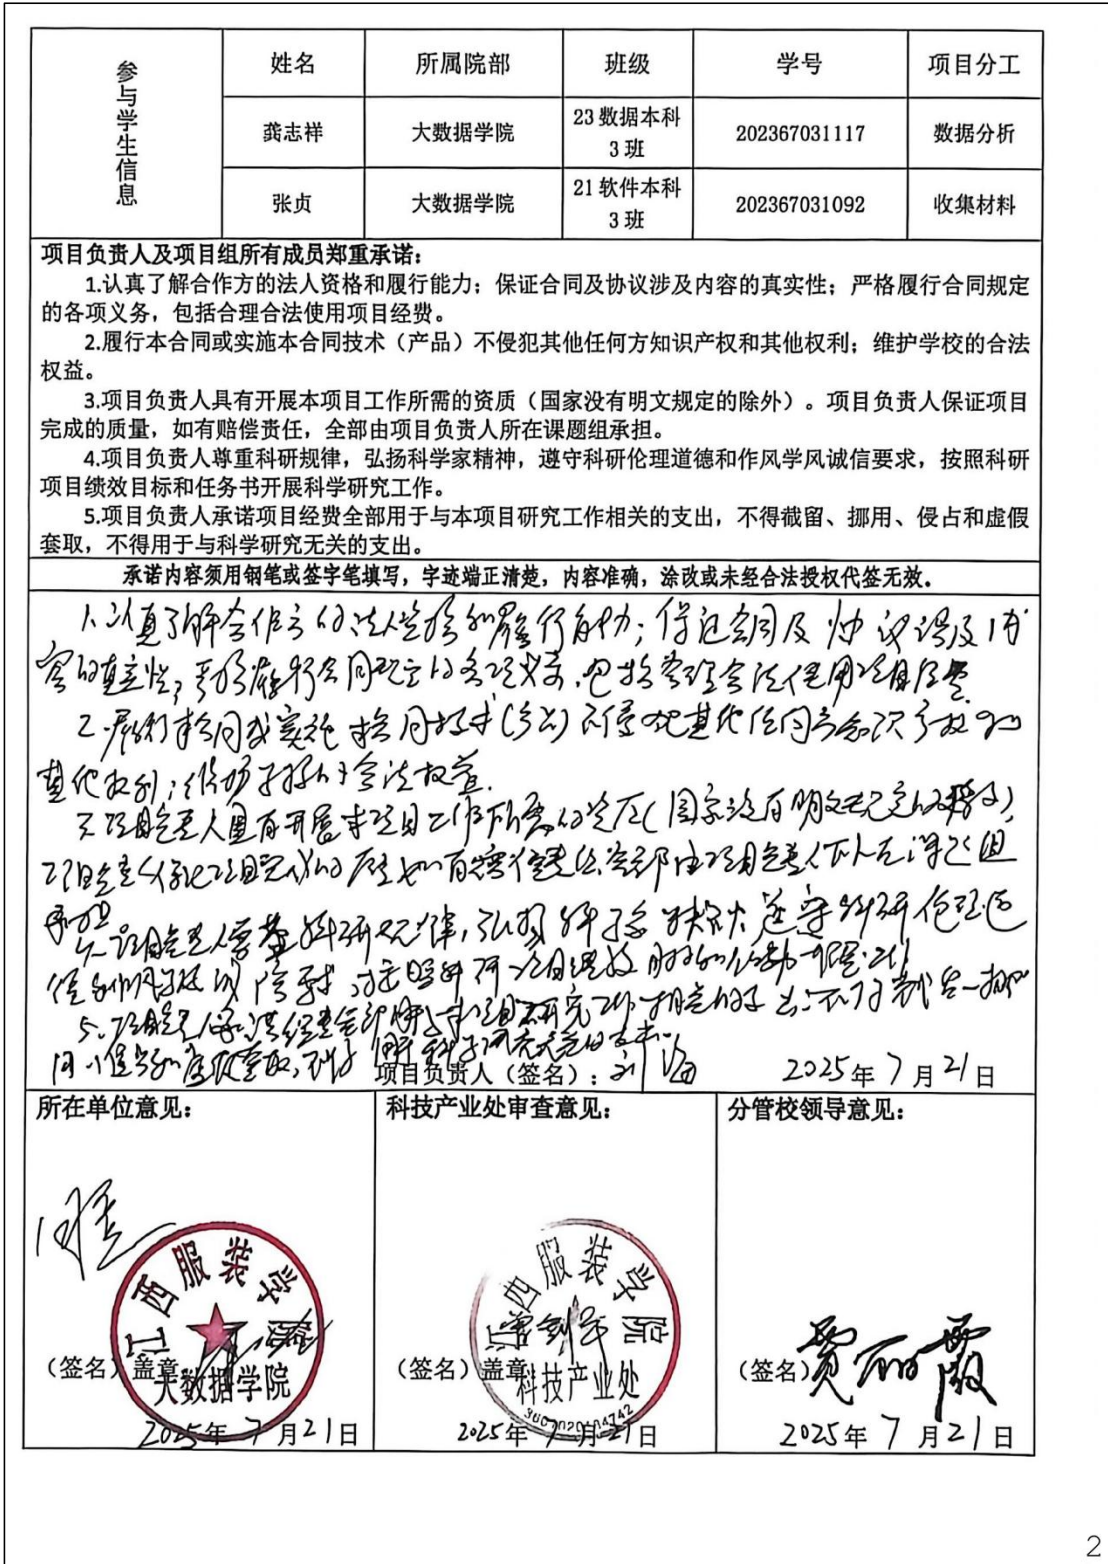 参与学生信息
姓名 所属院部 班级 学号 项目分工
龚志祥 大数据学院 23数据本科3班 202367031117 数据分析
张贞 大数据学院 21软件本科3班 202367031092 收集材料
项目负责人及项目组所有成员郑重承诺：
1.认真了解合作方的法人资格和履行能力；保证合同及协议涉及内容的真实性；严格履行合同规定
的各项义务，包括合理合法使用项目经费。
2.履行本合同或实施本合同技术（产品）不侵犯其他任何方知识产权和其他权利；维护学校的合法
权益。
3.项目负责人具有开展本项目工作所需的资质（国家没有明文规定的除外）。项目负责人保证项目
完成的质量，如有赔偿责任，全部由项目负责人所在课题组承担。
4.项目负责人尊重科研规律，弘扬科学家精神，遵守科研伦理道德和作风学风诚信要求，按照科研
项目绩效目标和任务书开展科学研究工作。
5.项目负责人承诺项目经费全部用于与本项目研究工作相关的支出，不得截留、挪用、侵占和虚假
套取，不得用于与科学研究无关的支出。
承诺内容须用钢笔或签字笔填写，字迹端正清楚，内容准确，涂改或未经合法授权代签无效。
1.认真了解合作方的法人资格和履行能力；保证合同及协议涉及内
容的真实性；严格履行合同规定的各项义务，包括合理合法使用项目经费
2.履行本合同或实施本合同技术（产品）不侵犯其他任何方知识产权和
其他权利；维护学校的合法权益.
3.项目负责人具有开展本项目工作所需的资质（国家没有明文规定的除外）
项目负责人保证项目完成的质量如有赔偿责任全部由项目负责人所在课题组
承担
4.项目负责人尊重科研规律，弘扬科学家精神 遵守科研伦理道
5.项目负责人承诺经费全部用于与本项目研究工作相关的支出 不得截留 挪
用 侵占和虚假套取，不得用于科学研究无关的支出
项目负责人（签名）： 2025年7月21日
所在单位意见： 科技产业处审查意见： 分管校领导意见：
同意
江西服装学院
大数据学院
（签名）盖章
2025年7月21日
江西服装学院
科技产业处
3607020104742
（签名）盖章
2025年7月21日
（签名） 贾丽霞
2025年7月21日
2